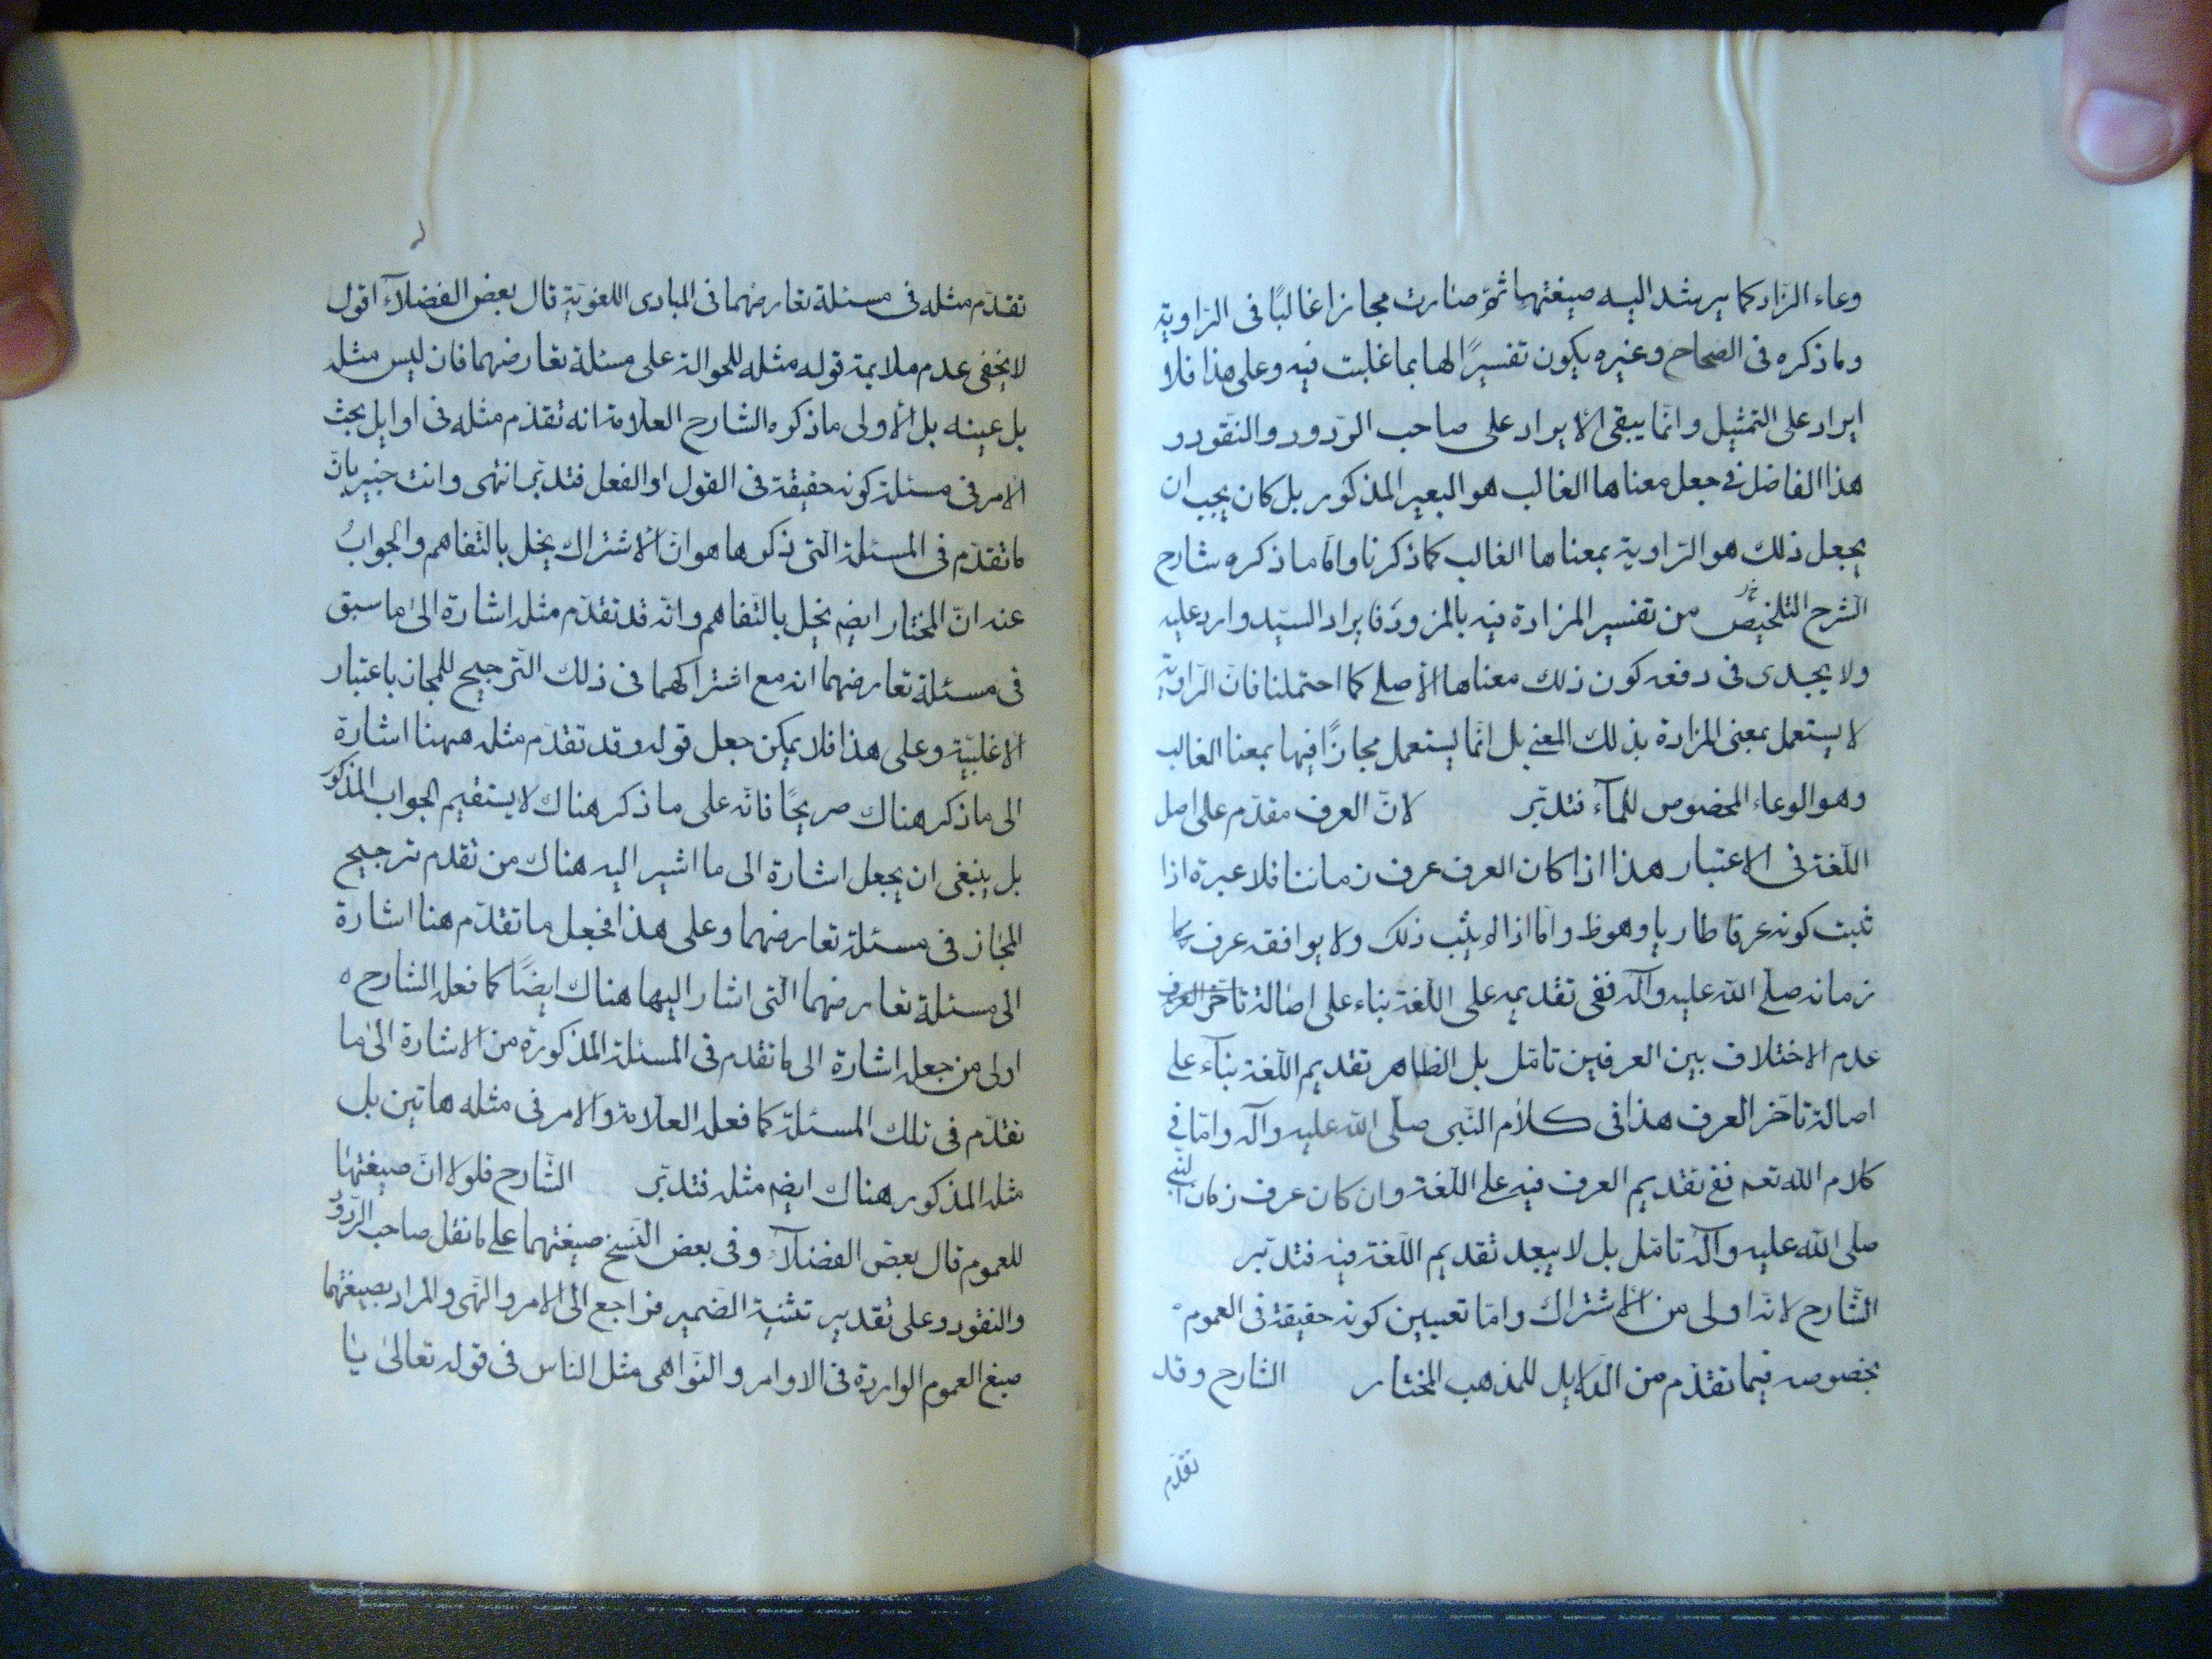 وعاء الزّاد كما يرشد اليه صيغتها ثمّ صارت مجازا غالبًا فى الرّاوية
وما ذكره فى الصّحاح وغيره يكون تفسيرًا لها بما غلبت فيه وعلى هذا فلا
ايراد على التمثيل وانّما يبقى الايراد على صاحب الرّدود والنّقود و
هذا الفاضل فى جعل معناها الغالب هو البعير المذكور بل كان يجب ان
يجعل ذلك هو الرّاوية بمعناها الغالب كما ذكرنا وامّا ما ذكره شارح
الشرح التلخيص من تفسير المزادة فيه بالمزود فايراد السيّد وارد عليه
ولا يجدى فى دفعه كون ذلك معناها الأصلے كما احتملنا فانّ الرّاوية
لا يستعمل بمعنى المزادة بذلك المعنے بل انّما يستعمل مجازًا فيها بمعنا الغالب
وهو الوعاء المخصوص للمآء فتدبّر لانّ العرف مقدّم على اصل
اللّغة فى الاعتبار هذا اذا كان العرف عرف زماننا فلا عبرة اذا
ثبت كونه عرفا طاريا وهو ظ وامّا اذا لم يثبت ذلك ولا يوافقه عرف
زمانه صلّے اللّه عليه وآله ففى تقديمه على اللّغة بناء على اصالة تاخّر العرف
عدم الاختلاف بين العرفين تامّل بل الظاهر تقديم اللّغة بنآء علے
اصالة تاخّر العرف هذا فى كلام النّبى صلّى اللّه عليه وآله وامّا فے
كلام اللّه تعه ففے تقديم العرف فيه علے اللّغة وان كان عرف زمان النّبى
صلّى اللّه عليه وآله تامّل بل لا يبعد تقديم اللّغة فيه فتدبّر
الشّارح لانّه اولى من الاشتراك وامّا تعيين كونه حقيقة فى العموم
بخصوصه فيما تقدّم من الدّلايل للمذهب المختار الشارح وقد
تقدّم
تقدّم مثله فى مسئلة تعارضهما فى المبادى اللغويّة قال بعض الفضلآء اقول
لا يخفى عدم ملايمة قوله مثله للحوالة على مسئلة تعارضهما فان ليس مثله
بل عينه بل الأولى ما ذكره الشارح العلّامة انه تقدّم مثله فى اوايل بحث
الامر فى مسئلة كونه حقيقة فى القول او الفعل فتدبّر انتهى وانت خبير بانّ
ما تقدّم فى المسئلة الّتى ذكرها هو انّ الاشتراك يخل بالتّفاهم والجوابُ
عنه انّ المختار ايضا يخل بالتّفاهم وانّه قد تقدّم مثله اشارة الى ما سبق
فى مسئلة تعارضهما انه مع اشتراكهما فى ذلك التّرجيح للمجاز باعتبار
الاغلبيّة وعلى هذا فلا يمكن جعل قوله وقد تقدّم مثله ههنا اشارة
الى ما ذكر هناك صريحًا فانّه على ما ذكر هناك لا يستقيم الجواب المذكور
بل ينبغى ان يجعل اشارة الى ما اشير اليه هناك من تقدم ترجيح
المجاز فى مسئلة تعارضهما وعلى هذا فجعل ما تقدّم هنا اشارة
الى مسئلة تعارضهما الّتى اشار اليها هناك ايضًا كما فعله الشارح
اولى من جعله اشارة الى ما تقدم فى المسئلة المذكورة من الاشارة الى ما
تقدّم فى تلك المسئلة كما فعله العلّامة والامر فى مثله هاتين بل
مثله المذكور هناك ايضا مثله فتدبّر الشّارح فلولا انّ صيغتها
للعموم قال بعض الفضلآء وفى بعض النّسخ صيغتهما علے ما نقل صاحب الرّدود
والنقود وعلى تقدير تثنية الضمير فراجع الى الامر والنّهى والمراد بصيغتهما
صيغ العموم الواردة فى الاوامر والنّواهى مثل النّاس فى قوله تعالىٰ يا